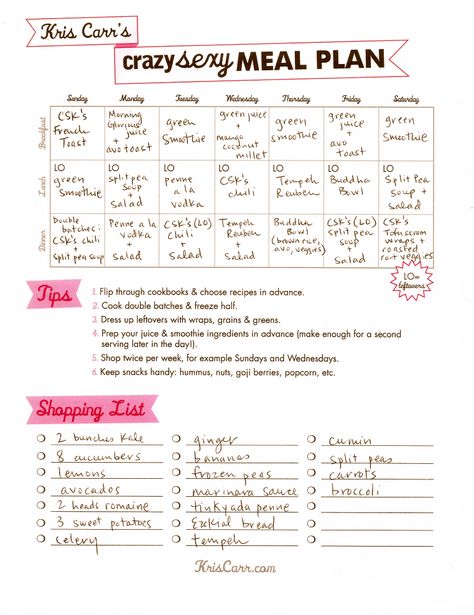 Kris Carr's
crazy sexy MEAL PLAN
Sunday Monday Tuesday Wednesday Thursday Friday Saturday
Breakfast
CSK's
French
Toast
Morning
Glorious
juice
+
avo toast
green
Smoothie
green juice
+
mango
coconut
millet
green
Smoothie
green
juice
+
avo
toast
green
Smoothie
Lunch
green
Smoothie
LO
split pea
Soup
+
salad
LO
penne
a la
vodka
LO
CSK's
chili
LO
Tempeh
Reuben
LO
Buddha
Bowl
LO
Split Pea
Soup
+
Salad
Dinner
Double
batches:
CSK's chili
+
split pea soup
Penne a la
vodka
+
Salad
CSK's (LO)
Chili
+
Salad
Tempeh
Reuben
+
Salad
Buddha
Bowl
(brown rice,
avo, veggies)
CSK's (LO)
split pea
soup
+
Salad
CSK's
Tofu scram
wraps +
roasted
root veggies
LO =
leftovers
Tips
1. Flip through cookbooks & choose recipes in advance.
2. Cook double batches & freeze half.
3. Dress up leftovers with wraps, grains & greens.
4. Prep your juice & smoothie ingredients in advance (make enough for a second
serving later in the day!).
5. Shop twice per week, for example Sundays and Wednesdays.
6. Keep snacks handy: hummus, nuts, goji berries, popcorn, etc.
Shopping List
2 bunches kale
8 cucumbers
lemons
avocados
2 heads romaine
3 sweet potatoes
celery
ginger
bananas
frozen peas
marinara sauce
tinkyada penne
Ezekial bread
tempeh
cumin
split peas
carrots
broccoli
KrisCarr.com